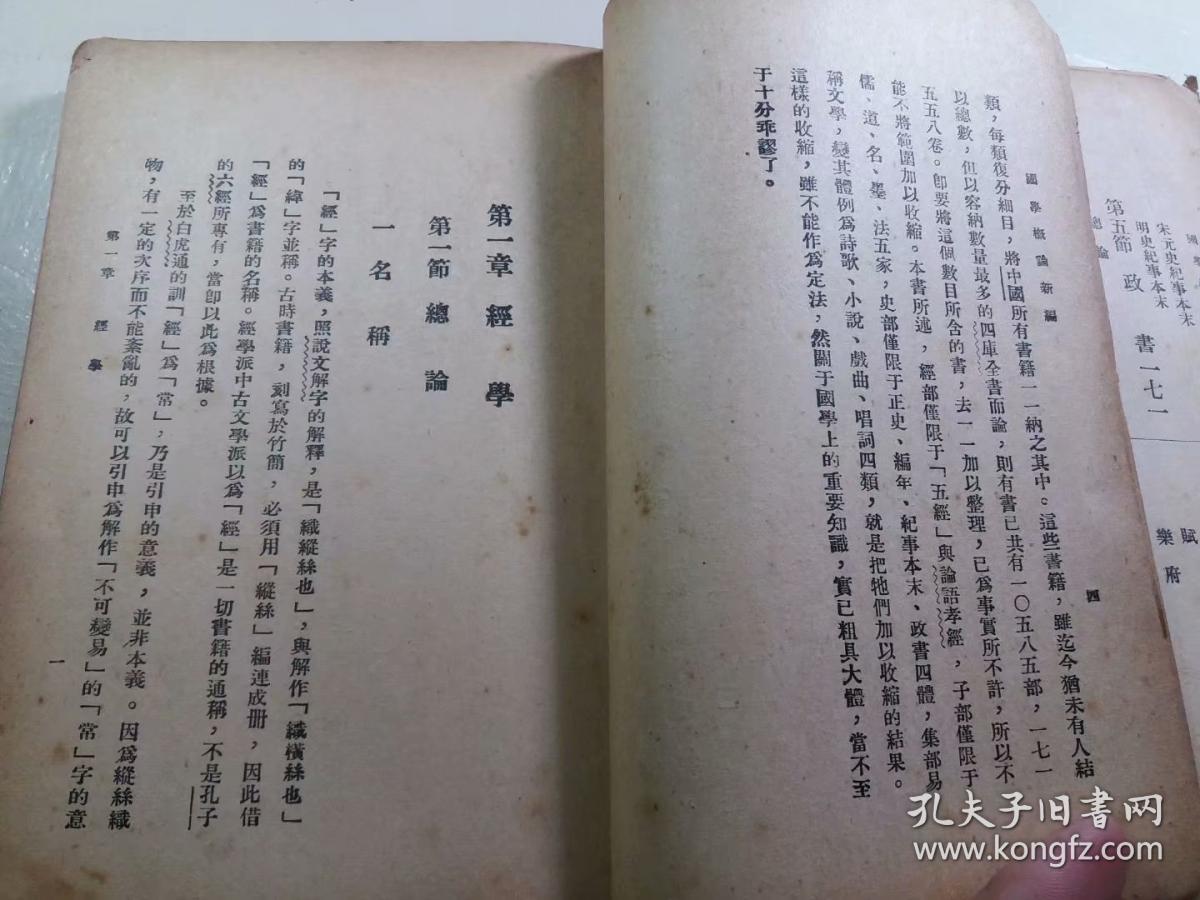 國學概論新編
四
類，每類復分細目，將中國所有書籍一一納之其中。這些書籍，雖迄今猶未有人結
以總數，但以容納數量最多的四庫全書而論，則有書已共有一〇五八五部，一七一
五五八卷。卽要將這個數目所含的書，去一一加以整理，已爲事實所不許，所以不
能不將範圍加以收縮。本書所述，經部僅限于「五經」與論語孝經，子部僅限于
儒、道、名、墨、法五家，史部僅限于正史、編年、紀事本末、政書四體，集部易
稱文學，變其體例爲詩歌、小說、戲曲、唱詞四類，就是把牠們加以收縮的結果。
這樣的收縮，雖不能作爲定法，然關于國學上的重要知識，實已粗具大體，當不至
于十分乖謬了。
第一章 經學
第一節 總論
一 名稱
「經」字的本義，照說文解字的解釋，是「織縱絲也」，與解作「織橫絲也」
的「緯」字並稱。古時書籍，刻寫於竹簡，必須用「縱絲」編連成册，因此借
「經」爲書籍的名稱。經學派中古文學派以爲「經」是一切書籍的通稱，不是孔子
的六經所專有，當卽以此爲根據。
至於白虎通的訓「經」爲「常」，乃是引申的意義，並非本義。因爲縱絲織
物，有一定的次序而不能紊亂的，故可以引申爲解作「不可變易」的「常」字的意
第一章 經學
一
國學
宋元史紀事本末
明史紀事本末
第五節 政書一七一
總論
賦
樂府
孔夫子旧书网
www.kongfz.com